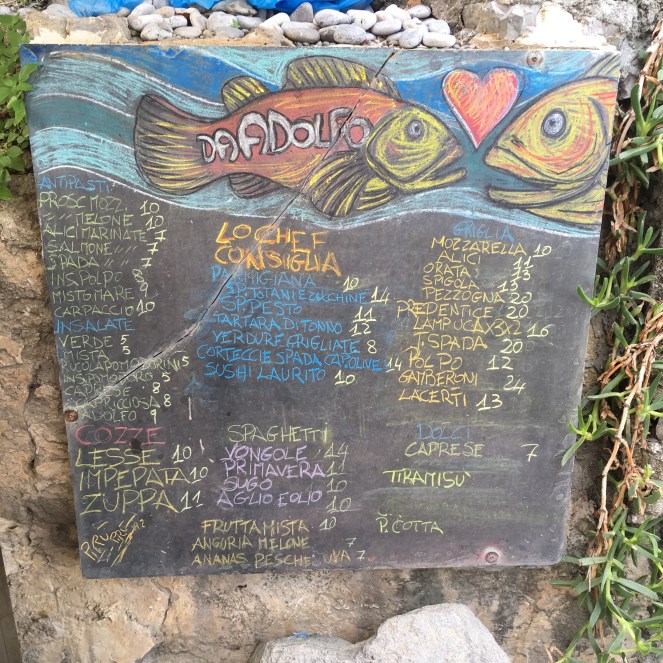 DA ADOLFO
ANTIPASTI
PROSC MOZZ. 10
" " MELONE 10
ALICI MARINATE 7
SALMONE " 7
SPADA " 9
INS. POLPO 8
MISTO MARE 9
CARPACCIO 10
INSALATE
VERDE 5
MISTA 5
RUCOLA POMODORINI 5
INS. POMODORO 5
CAPRESE 8
CAPRICCIOSA 8
ADOLFO 9
COZZE
LESSE 10
IMPEPATA 10
ZUPPA 11
LO CHEF
CONSIGLIA
PARMIGIANA 10
SP. TOTANI E ZUCCHINE 14
SP. PESTO 11
TARTARA DI TONNO 12
VERDURE GRIGLIATE 8
CORTECCIE SPADA CAP. OLIVE 14
SUSHI LAURITO 10
SPAGHETTI
VONGOLE 14
PRIMAVERA 11
SUGO 10
AGLIO E OLIO 10
FRUTTA MISTA 10
ANGURIA MELONE 7
ANANAS PESCHE UVA 7
GRIGLIA
MOZZARELLA 10
ALICI 11
ORATA 13
SPIGOLA 13
PEZZOGNA 20
PREDENTICE 20
LAMPUGA X3X2 16
T. SPADA 20
POLPO 12
GAMBERONI 24
LACERTI 13
DOLCI
CAPRESE 7
TIRAMISU'
P. COTTA